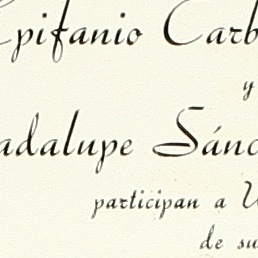 Epifanio Carb
y
adalupe Sánc
participan a U
de su